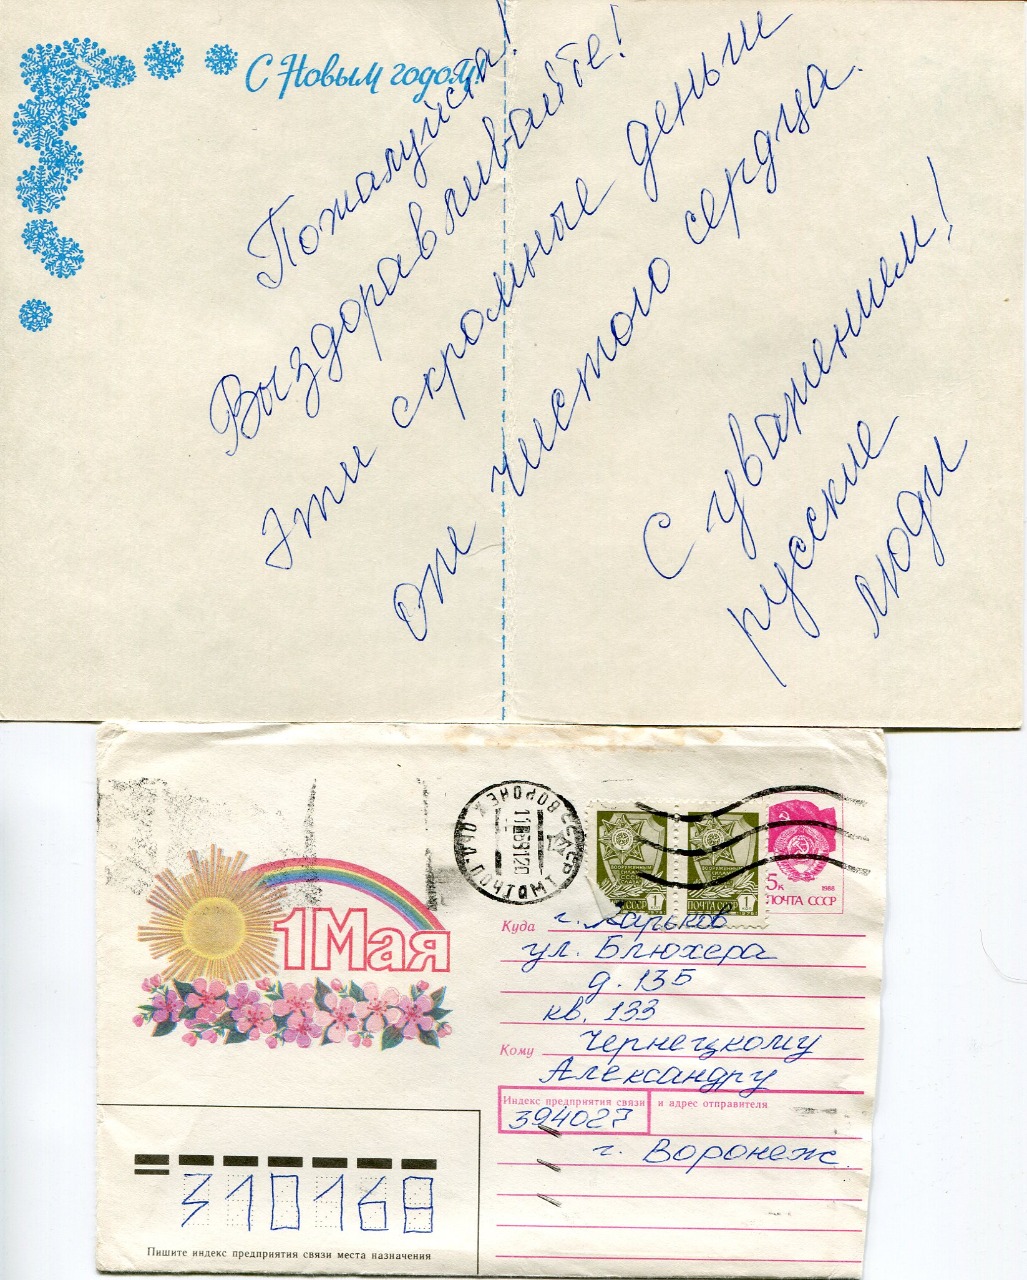 С Новым годом!
Пожалуйста!
Выздоравливайте!
Эти скромные деньги
от чистого сердца.
С уважением!
русские
люди
ВОРОНЕЖ
СССР
ПОЧТАМТ
ВООРУЖЕННЫЕ
СИЛЫ
ПОЧТА СССР 1
ВООРУЖЕННЫЕ
СИЛЫ
ПОЧТА СССР 1
5к 1988
ПОЧТА СССР
1 Мая
Куда г. Харьков
ул. Блюхера
д. 13Б
кв. 133
Кому Чернецкому
Александру
Индекс предприятия связи и адрес отправителя
394027
г. Воронеж.
310168
Пишите индекс предприятия связи места назначения